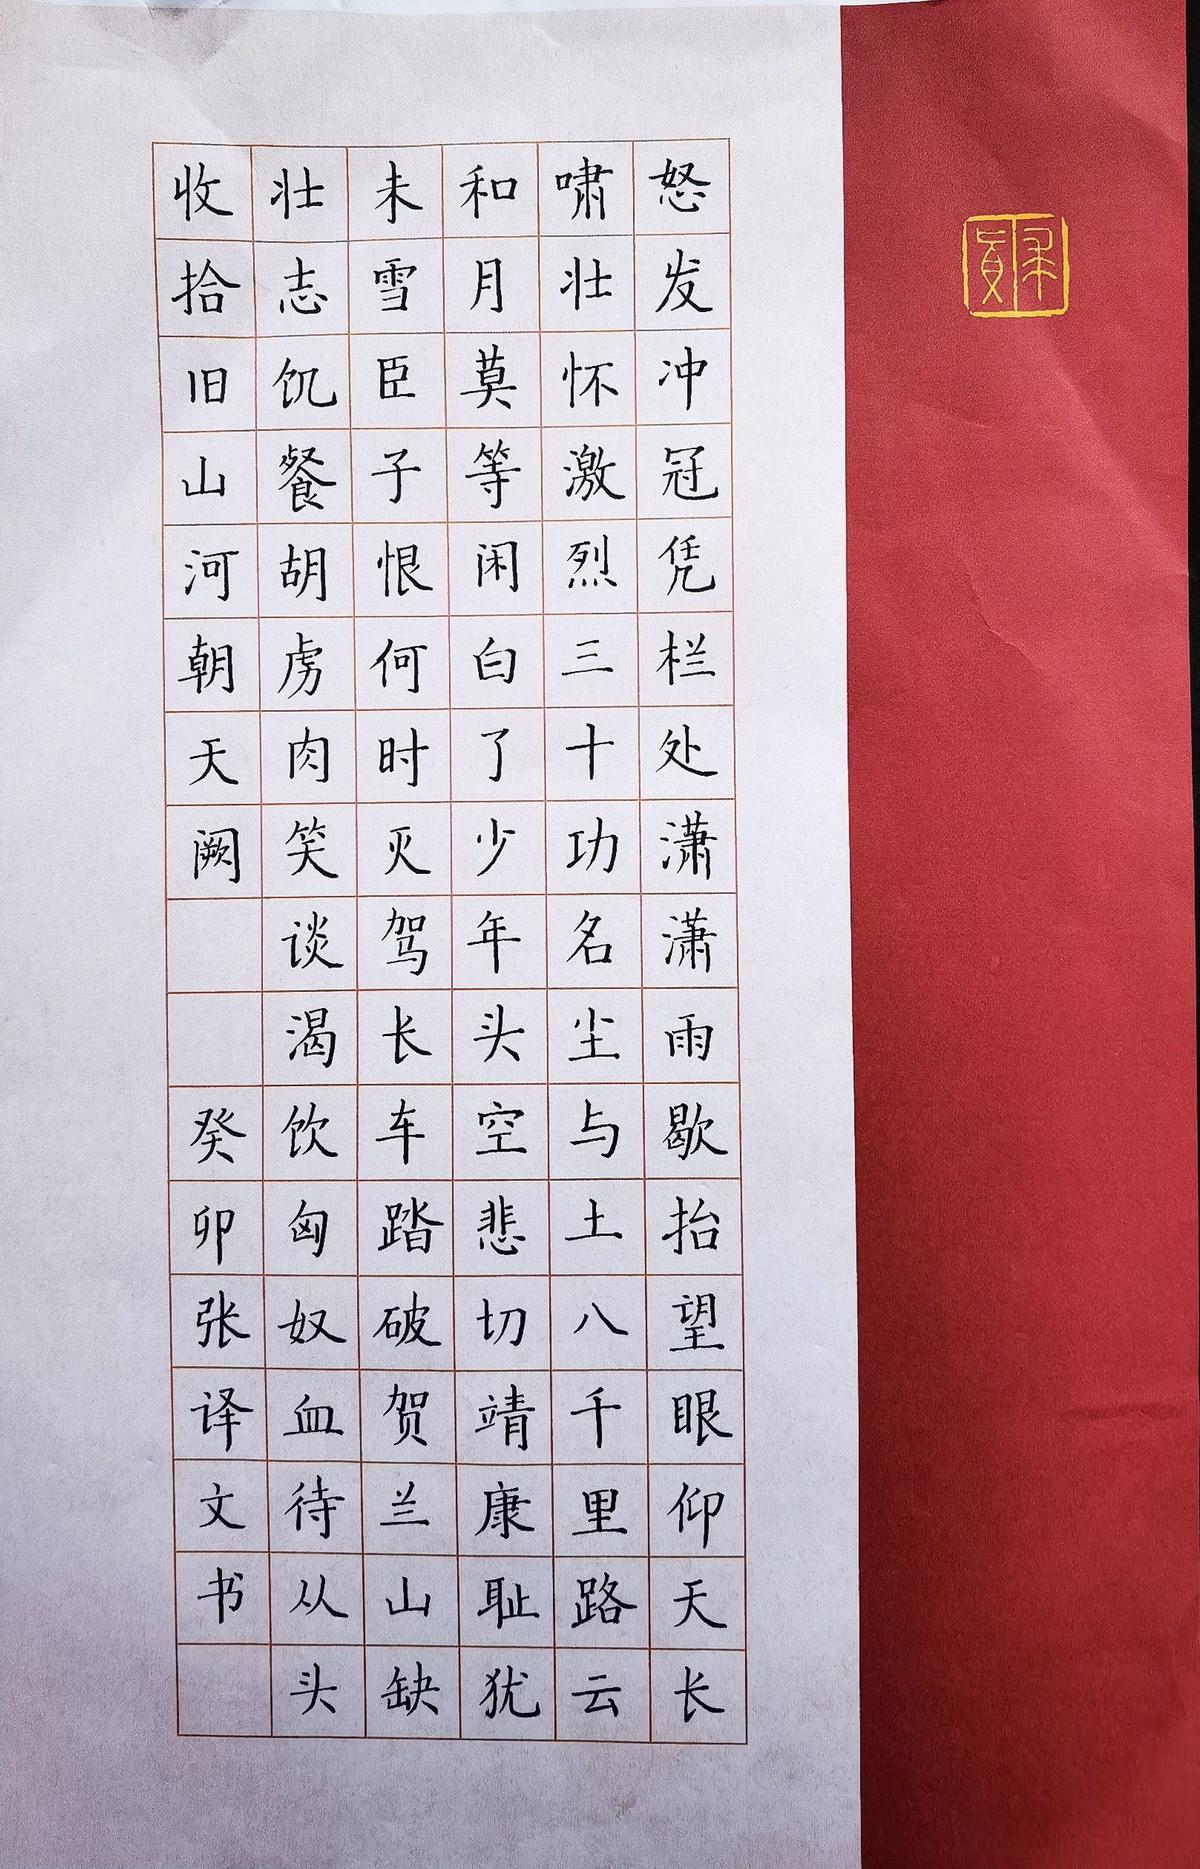 怒发冲冠凭栏处潇潇雨歇抬望眼仰天长
啸壮怀激烈三十功名尘与土八千里路云
和月莫等闲白了少年头空悲切靖康耻犹
未雪臣子恨何时灭驾长车踏破贺兰山缺
壮志饥餐胡虏肉笑谈渴饮匈奴血待从头
收拾旧山河朝天阙 癸卯张译文书